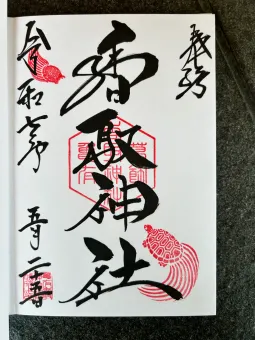 奉拝
香取神社
令和七年
五月二十五日